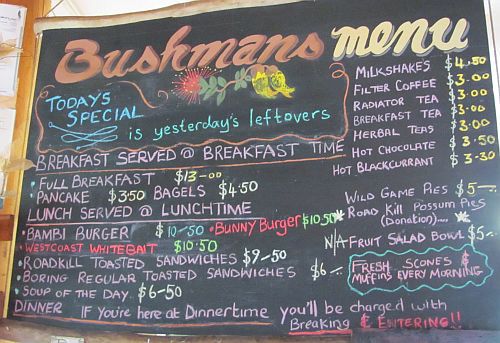 Bushmans menu
TODAYS
SPECIAL
is yesterday's leftovers
BREAKFAST SERVED @ BREAKFAST TIME
• FULL BREAKFAST $13-00
• PANCAKE $3.50 BAGELS $4.50
LUNCH SERVED @ LUNCHTIME
• BAMBI BURGER $10-50 • BUNNY BURGER $10.50
• WESTCOAST WHITEBAIT $10.50
• ROADKILL TOASTED SANDWICHES $9-50
• BORING REGULAR TOASTED SANDWICHES $6-
• SOUP OF THE DAY. $6-50
DINNER IF YOU'RE HERE AT DINNERTIME you'll be charged with
BREAKING & ENTERING!!
MILKSHAKES $4.50
FILTER COFFEE 3.00
RADIATOR TEA 3.00
BREAKFAST TEA 3.00
HERBAL TEAS 3.00
HOT CHOCOLATE 3.50
HOT BLACKCURRANT 3-30
WILD GAME PIES $5-
ROAD KILL POSSUM PIES
(DONATION)....
N/A FRUIT SALAD BOWL $5-
FRESH SCONES &
MUFFINS EVERY MORNING